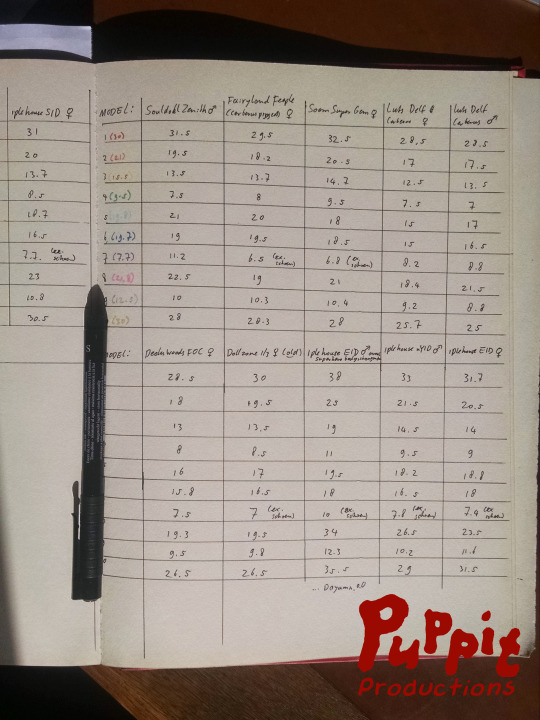 iplehouse SID ♀
31
20
13.7
8.5
18.7
16.5
7.7 (ex. schoen)
23
10.8
30.5
MODEL: Souldoll Zenith ♂ Fairyland Feeple (carbeus pigged) ♀ Soom Super Gem ♀ Luts Delf ♀ Luts Delf ♂
1 (30) 31.5 29.5 32.5 28,5 28.5
2 (21) 19.5 18.2 20.5 17 17.5
3 15.5 13.5 13.7 14.7 12.5 13.5
4 (9.5) 7.5 8 9.5 7.5 7
5 21 20 18 15 17
6 (19.7) 19 19.5 18.5 15 16.5
7 (7.7) 11.2 6.5 (ex. schoen) 6.8 (ex. schoen) 8.2 8.8
8 22.5 19 21 18.4 21.5
(12.5) 10 10.3 10.4 9.2 8.8
(30) 28 28.3 28 25.7 25
MODEL: FOC ♀ Dollzone 1/3 ♀ (old) Iplehouse EID ♂ iplehouse nYID ♂ iplehouse EID ♀
28.5 30 38 33 31.7
18 19.5 25 21.5 20.5
13 13,5 19 14.5 14
8 8.5 11 9.5 9
16 17 19.5 18.2 18.8
15.8 16.5 18 16.5 18
7.5 7 (ex. schoen) 10 (ex. schoen) 7.8 (ex. schoen) 7.4 (ex. schoen)
19.3 19.5 34 26.5 23.5
9.5 9.8 12.3 10.2 11.6
26.5 26.5 35.5 29 31.5
S
PuPPit
Productions